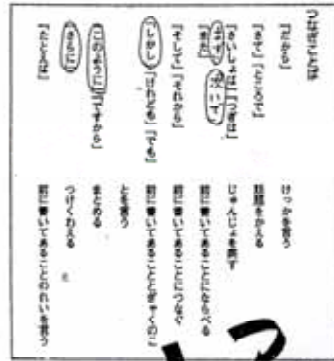 つなぎことば
「だから」 けっかを言う
「さて」「ところで」 話題をかえる
「さいしょは」「つぎは」 じゅんじょを表す
まず 次いで
「また」 前に書いてあることにならべる
「そして」「それから」 前に書いてあることにつなぐ
「しかし」「けれども」「でも」 前に書いてあることとぎゃくのこ
とを言う
「このように」「ですから」 まとめる
さらに つけくわえる
「たとえば」 前に書いてあることのれいを言う